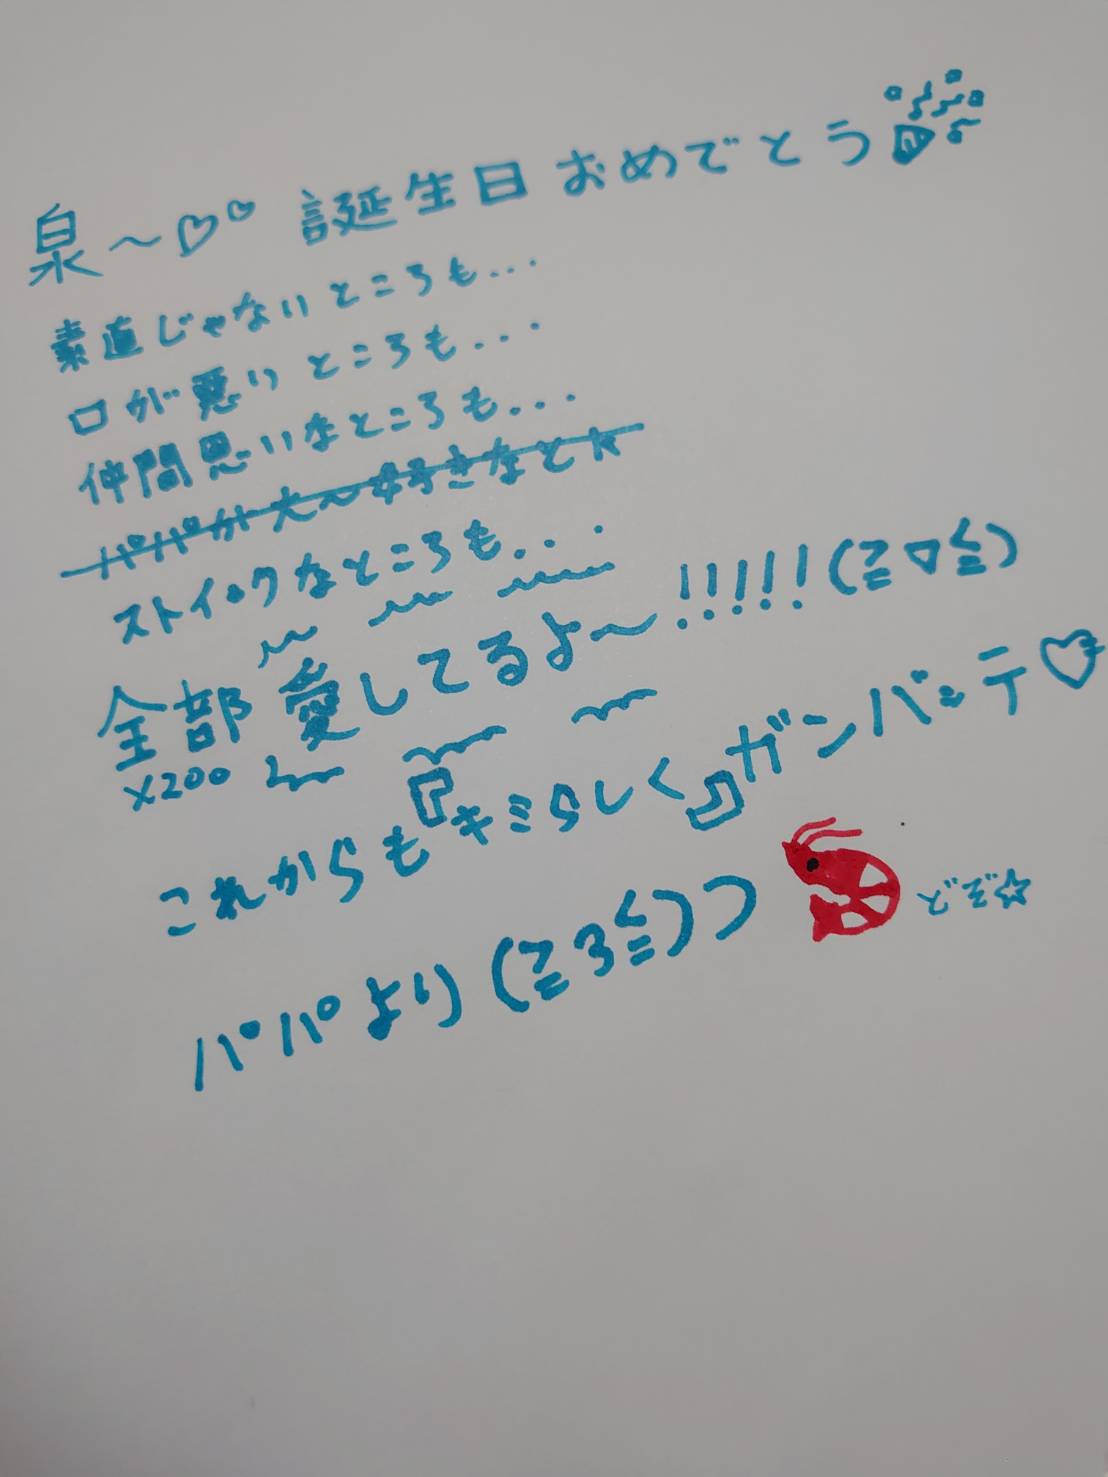 泉〜♡♡ 誕生日おめでとう
素直じゃないところも...
口が悪いところも...
仲間思いなところも...
パパが大〜好きなとk
ストイックなところも...
全部愛してるよ〜!!!!!(≧▽≦)
×200
これからも『キミらしく』ガンバッテ♡
パパより(≧3≦)つ どぞ☆